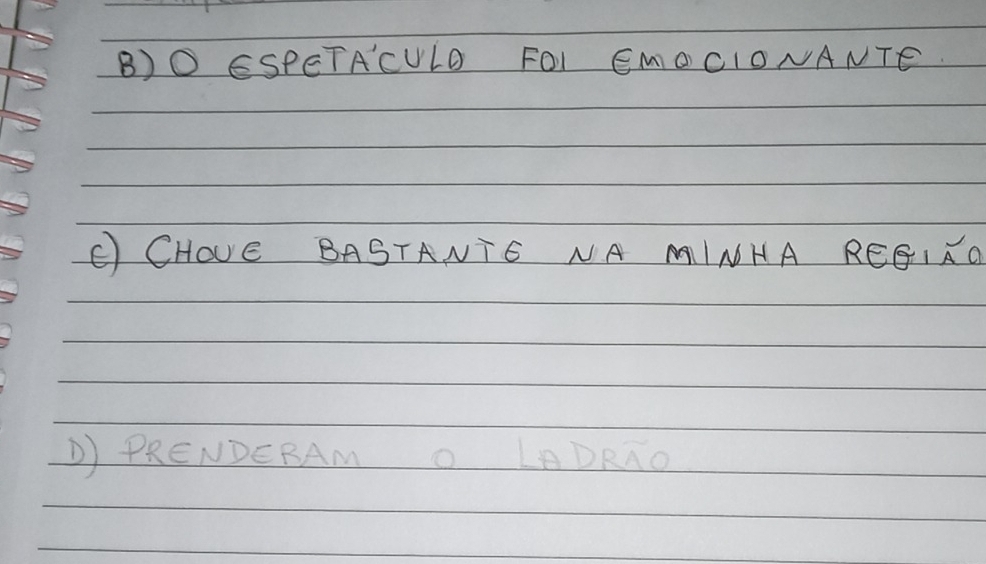 B) O ESPETÁCULO FOI EMOCIONANTE.
C) CHOVE BASTANTE NA MINHA REGIÃO
D) PRENDERAM O LADRÃO